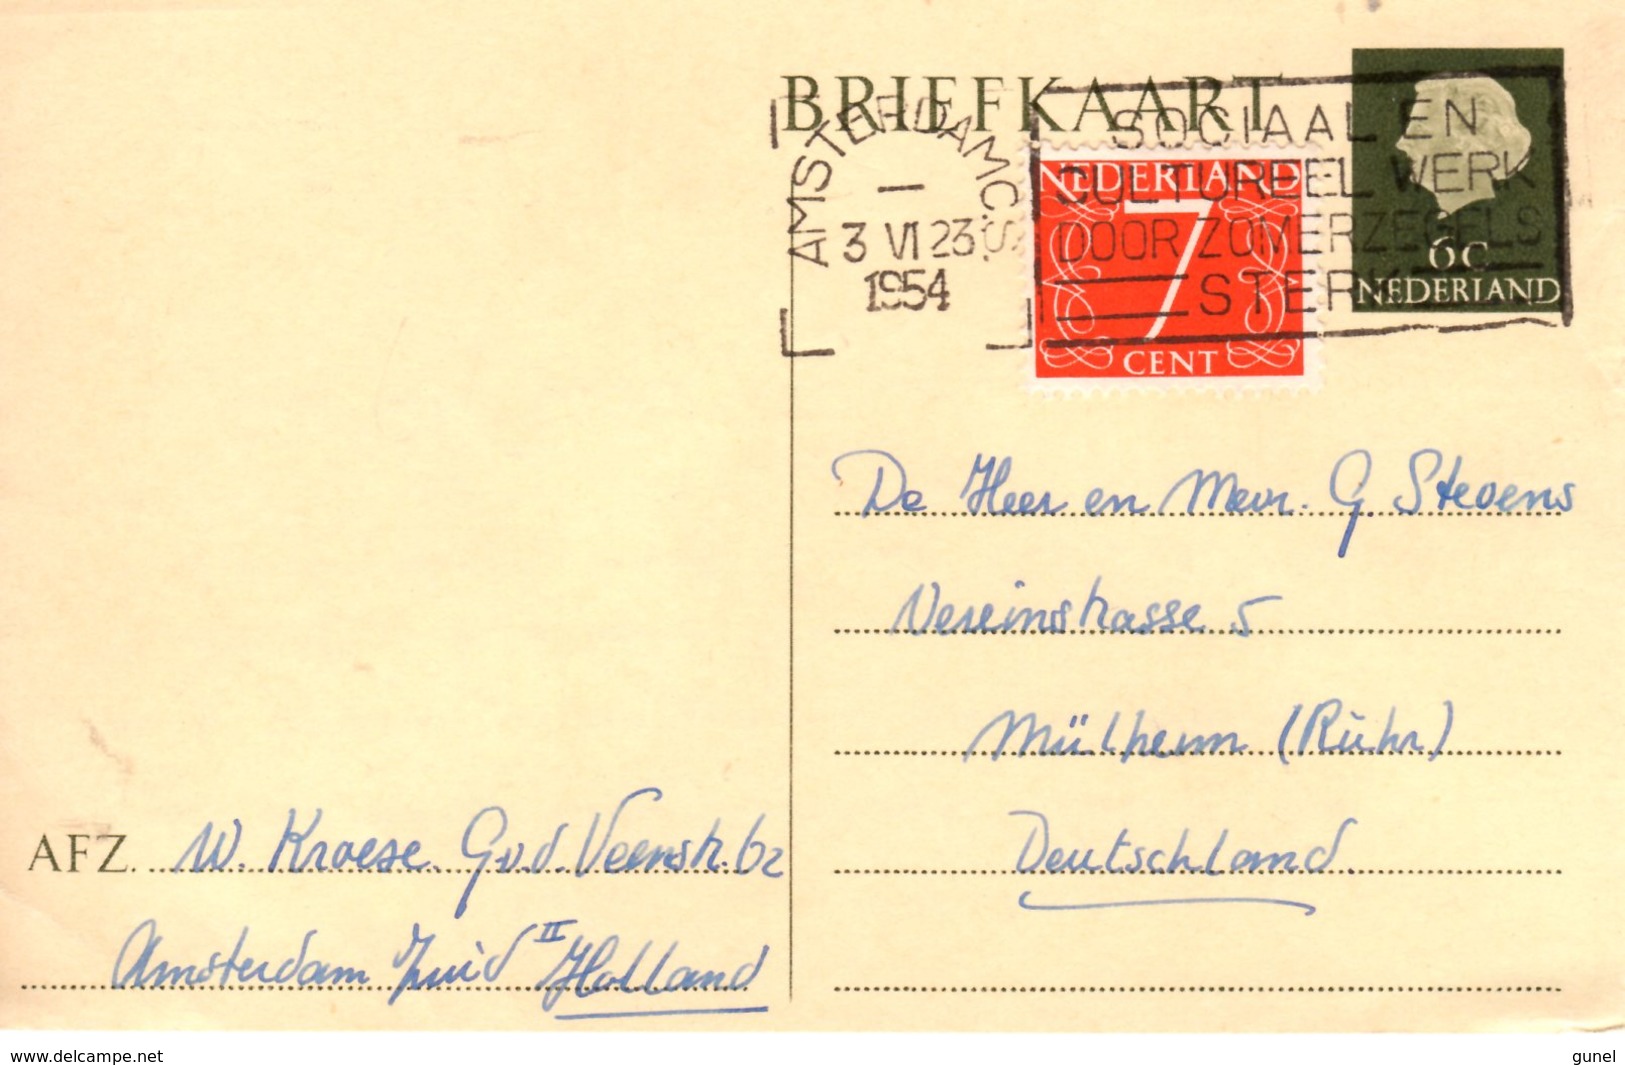 BRIEFKAART
AMSTERDAM C.S.
3 VI 23
1954
SOCIAAL EN
CULTUREEL WERK
DOOR ZOMERZEGELS
STERK
NEDERLAND
7
CENT
6 C
NEDERLAND
De Heer en Mevr. G. Stevens
Vereinstrasse 5
Mülheim (Rühr)
Deutschland.
AFZ. W. Kroese. G.v.d. Veenstr. 62
Amsterdam Zuid II Holland
www.delcampe.net
gunel